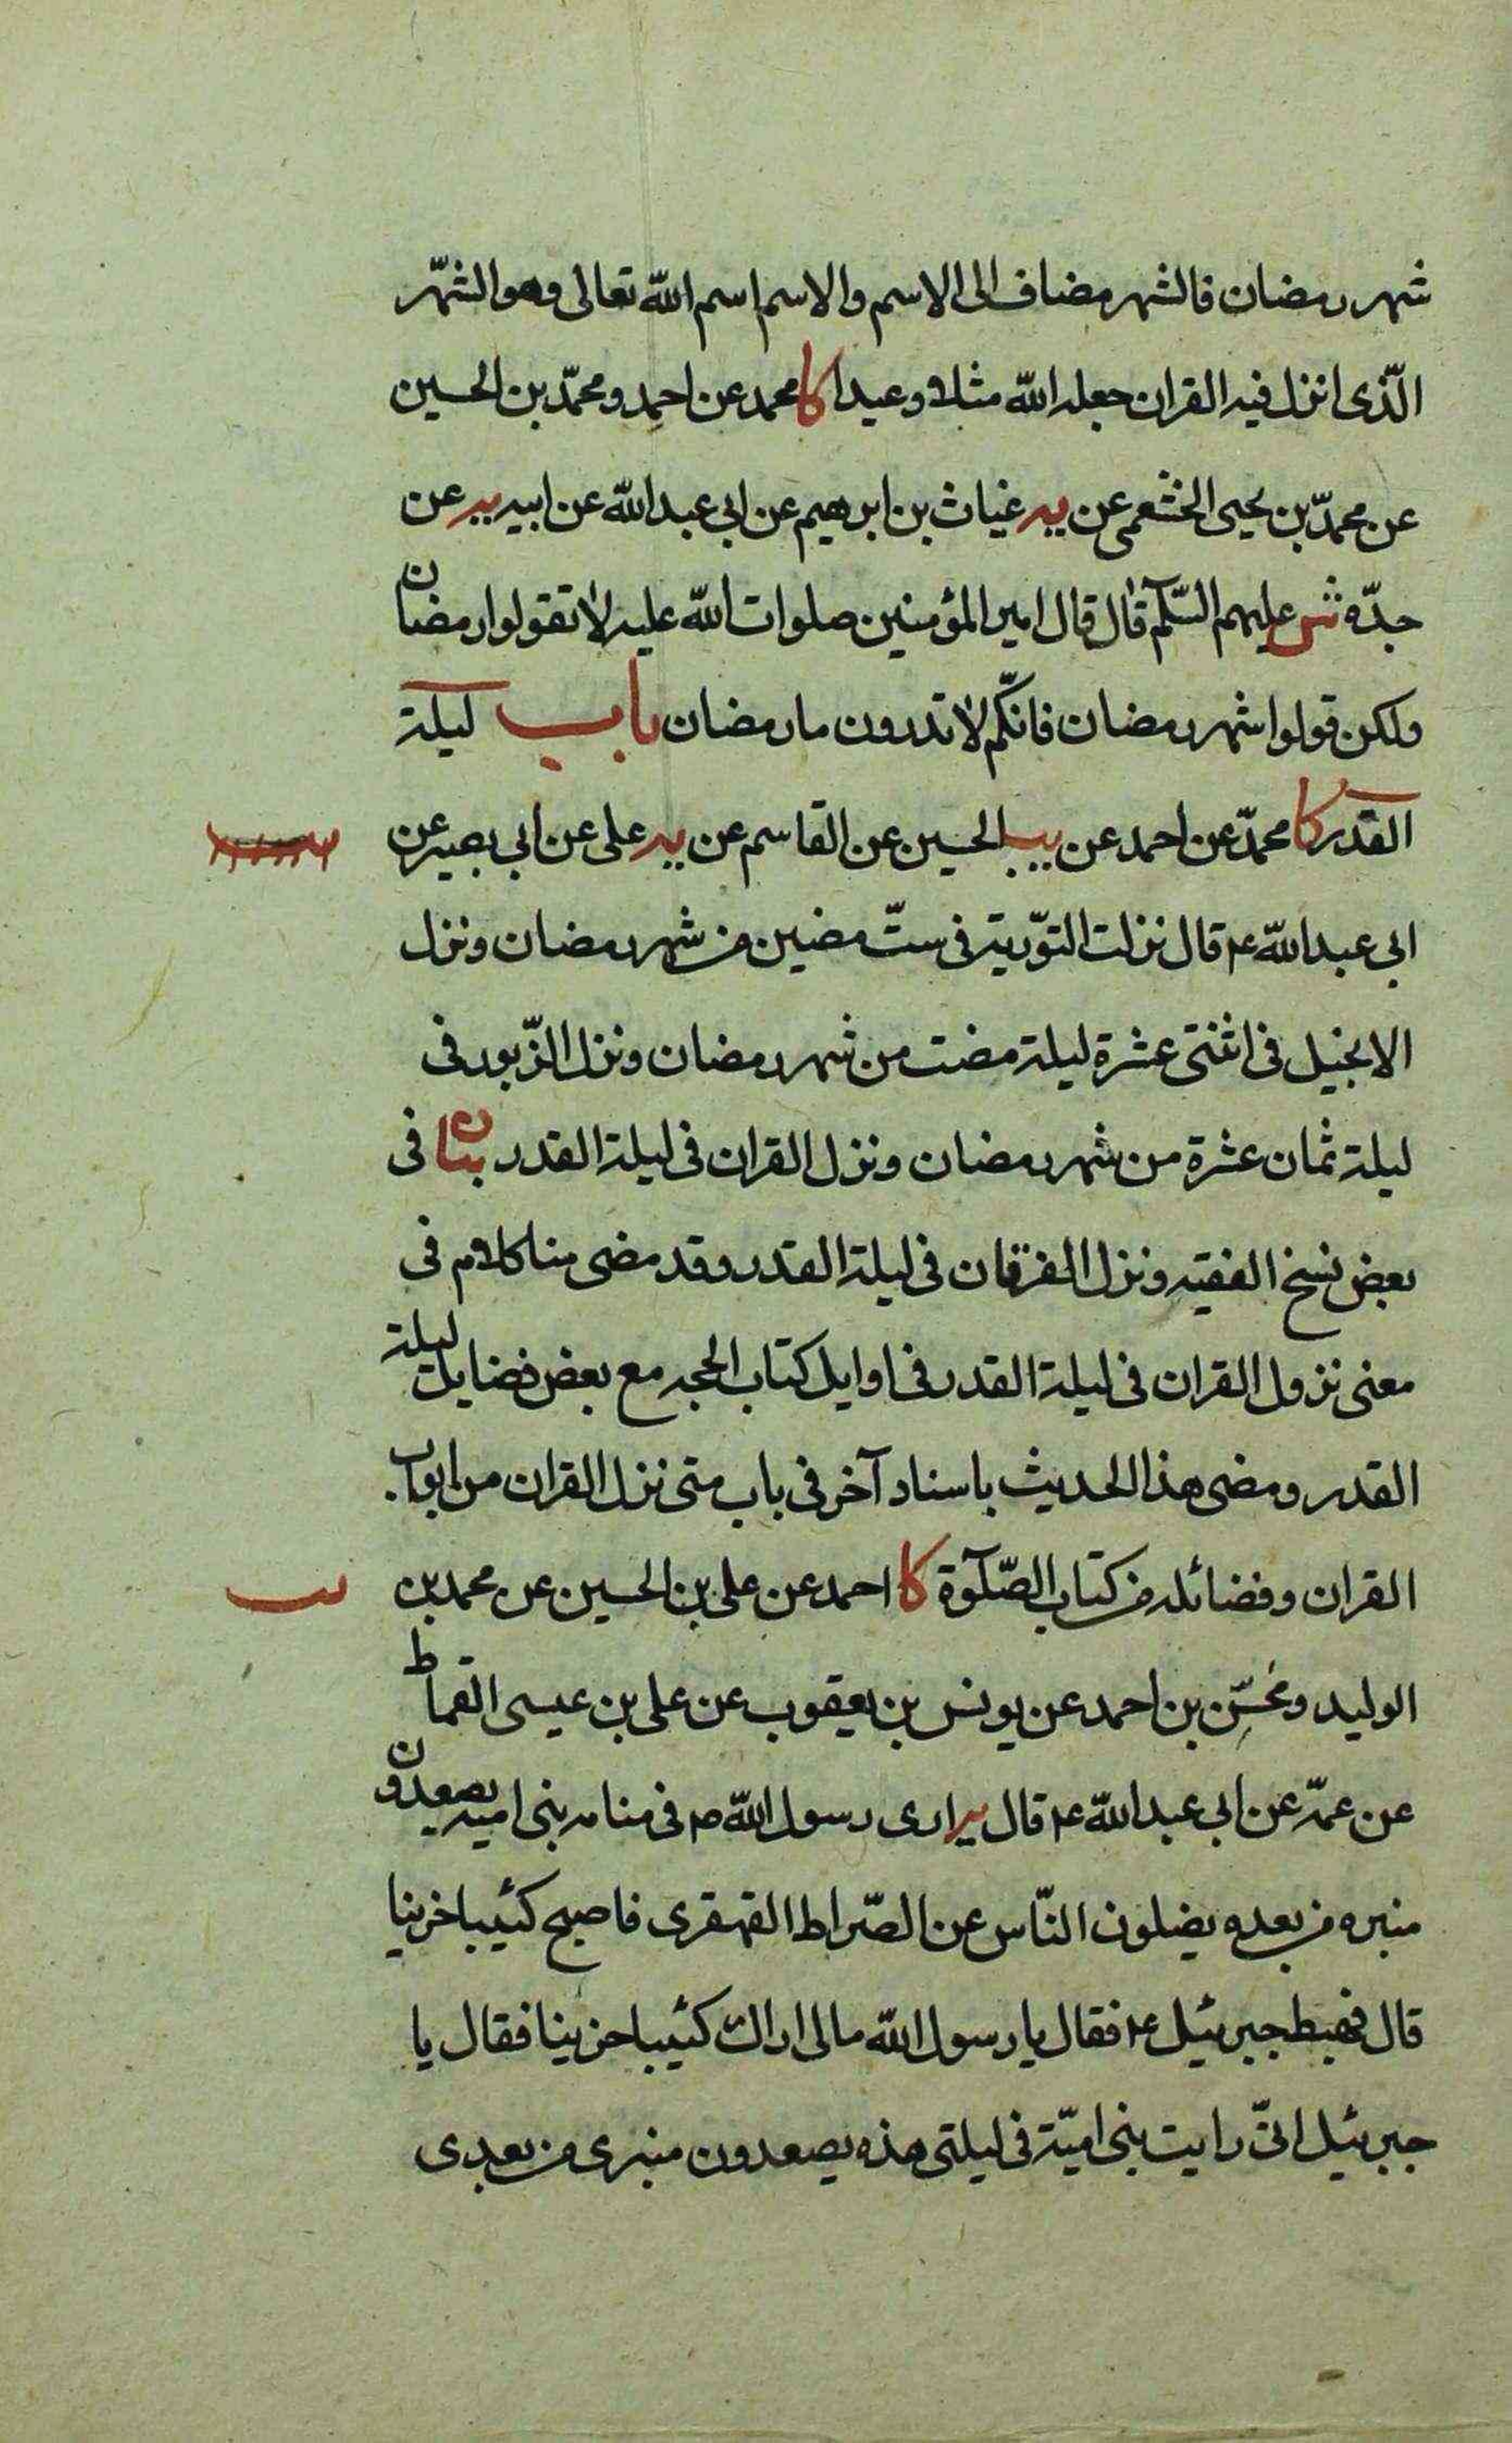 شهر رمضان فالشهر مضاف الى الاسم والاسم اسم الله تعالى وهو الشّهر
الّذى انزل فيه القران جعله الله مثلا وعيدا كا محمد عن احمد ومحمّد بن الحسين
عن محمّد بن يحيى الخثعمى عن يه غياث بن ابرهيم عن ابى عبد الله عن ابيه يه عن
جدّه ش عليهم السّلم قال قال امير المؤمنين صلوات الله عليه لا تقولوا رمضان
ولكن قولوا شهر رمضان فانّكم لا تدرون ما رمضان باب ليلة
القدر كا محمّد عن احمد عن يب الحسين عن القاسم عن يه على عن ابى بصير عن
ابى عبد الله ع قال نزلت التوّرية فى ستّ مضين من شهر رمضان ونزل
الانجيل فى اثنتى عشرة ليلة مضت من شهر رمضان ونزل الزّبور فى
ليلة ثمان عشرة من شهر رمضان ونزل القران فى ليلة القدر بيان فى
بعض نسخ الفقيه ونزل الفرقان فى ليلة القدر وقد مضى منا كلام فى
معنى نزول القران فى ليلة القدر فى اوايل كتاب الحجه مع بعض فضايل ليلة
القدر ومضى هذا الحديث باسناد آخر فى باب متى نزل القران من ابواب
القران وفضائله من كتاب الصّلوة كا احمد عن على بن الحسين عن محمد بن
الوليد ومحسّن بن احمد عن يونس بن يعقوب عن على بن عيسى القماط
عن عمّه عن ابى عبد الله ع قال يه ارى رسول الله ص فى منامه بنى اميه يصعدون
منبره من بعده يضلون النّاس عن الصّراط القهقرى فاصبح كئيبا حزينا
قال فهبط جبرئيل ع فقال يا رسول الله مالى اراك كئيبا حزينا فقال يا
جبرئيل انّى رايت بنى اميّة فى ليلتى هذه يصعدون منبرى من بعدى